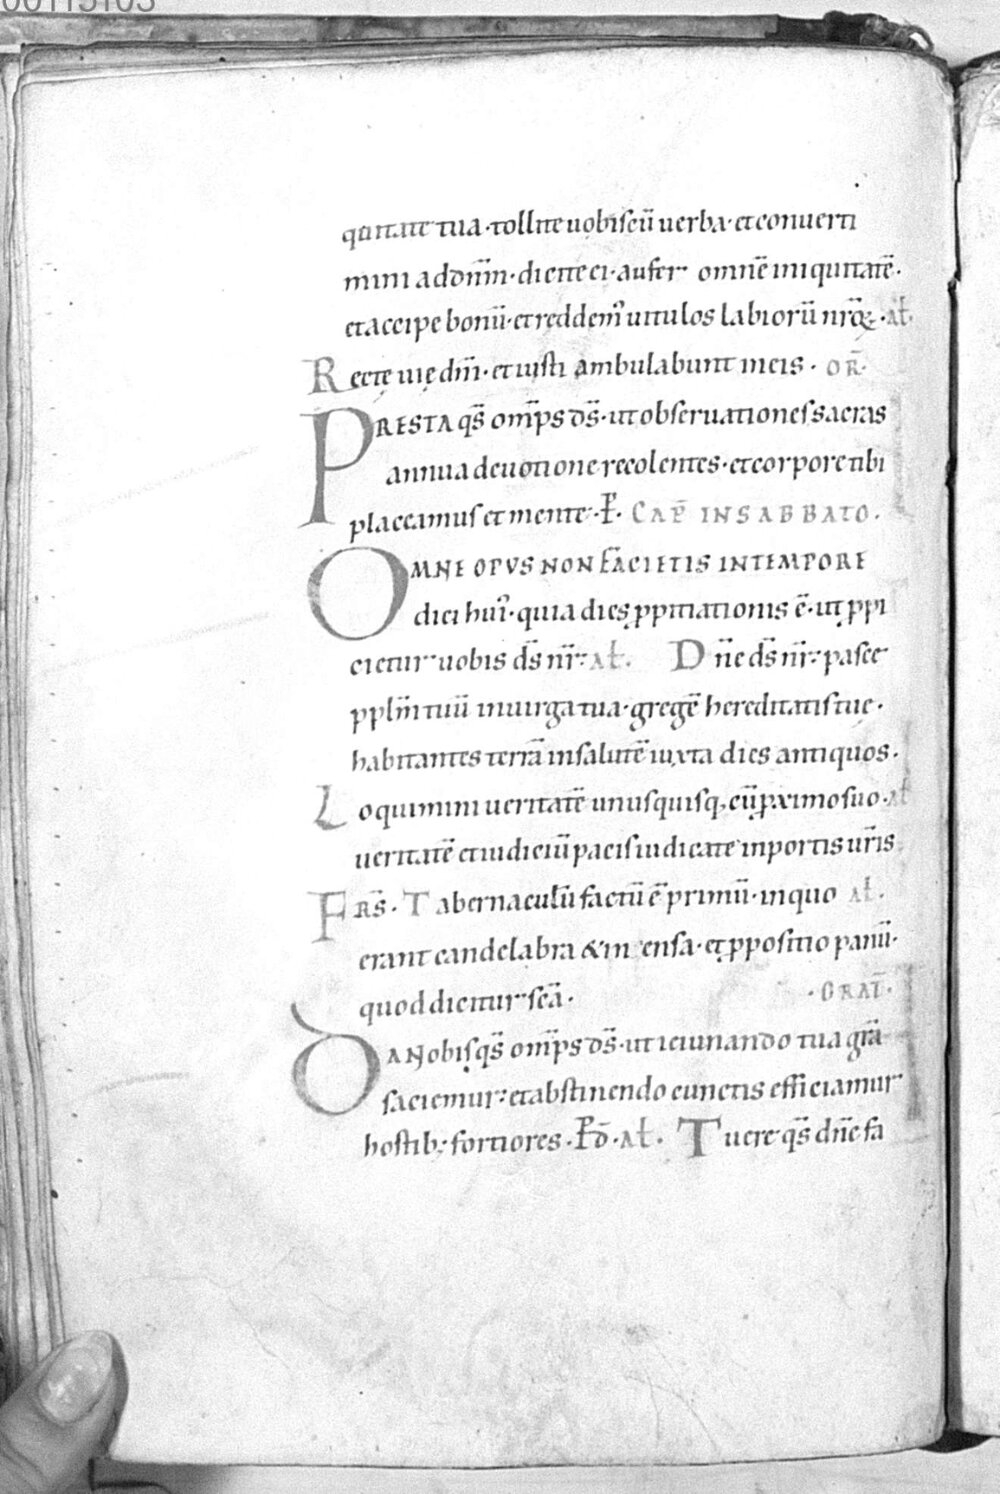 00115103
quitate tua · tollite uobiscū uerba · et conuerti
mini ad dom̄m · dicite ei · aufer omnē iniquitatē ·
et accipe bonū · et reddem᷒ uitulos labiorū nrōꝝ · aƚ ·
Rectę uię dn̄i · et iusti ambulabunt in eis · oR̄ ·
PRESTA qs̄ om̄ps ds̄ · ut obseruationes sacras
annua deuotione recolentes · et corpore tibi
placeamus et mente · P̄ · CAP̄ IN SABBATO ·
OMNE OPVS NON FACIETIS IN TEMPORE
diei hui᷒ · quia dies ꝓpitiationis ē · ut ꝓpi
cietur uobis ds̄ nr̄ · aƚ · Dn̄e ds̄ nr̄ · pasce
pplm̄ tuū in uirga tua · gregē hereditatis tuę ·
habitantes terrā in salutē iuxta dies antiquos ·
Loquimini ueritatē unusquisq; cū ꝓximo suo · aƚ
ueritatē et iudiciū pacis iudicate in portis ur̄is
FRS̄ · Tabernaculū factū ē primū · in quo aƚ ·
erant candelabra & mensa · et ꝓpositio panū ·
quod dicitur scā · · ORAT̄ ·
DA Nobis qs̄ om̄ps ds̄ · ut ieiunando tua grā
saciemur · et abstinendo cunctis efficiamur
hostib; fortiores · P̄d̄ · aƚ · Tuere qs̄ dn̄e fa